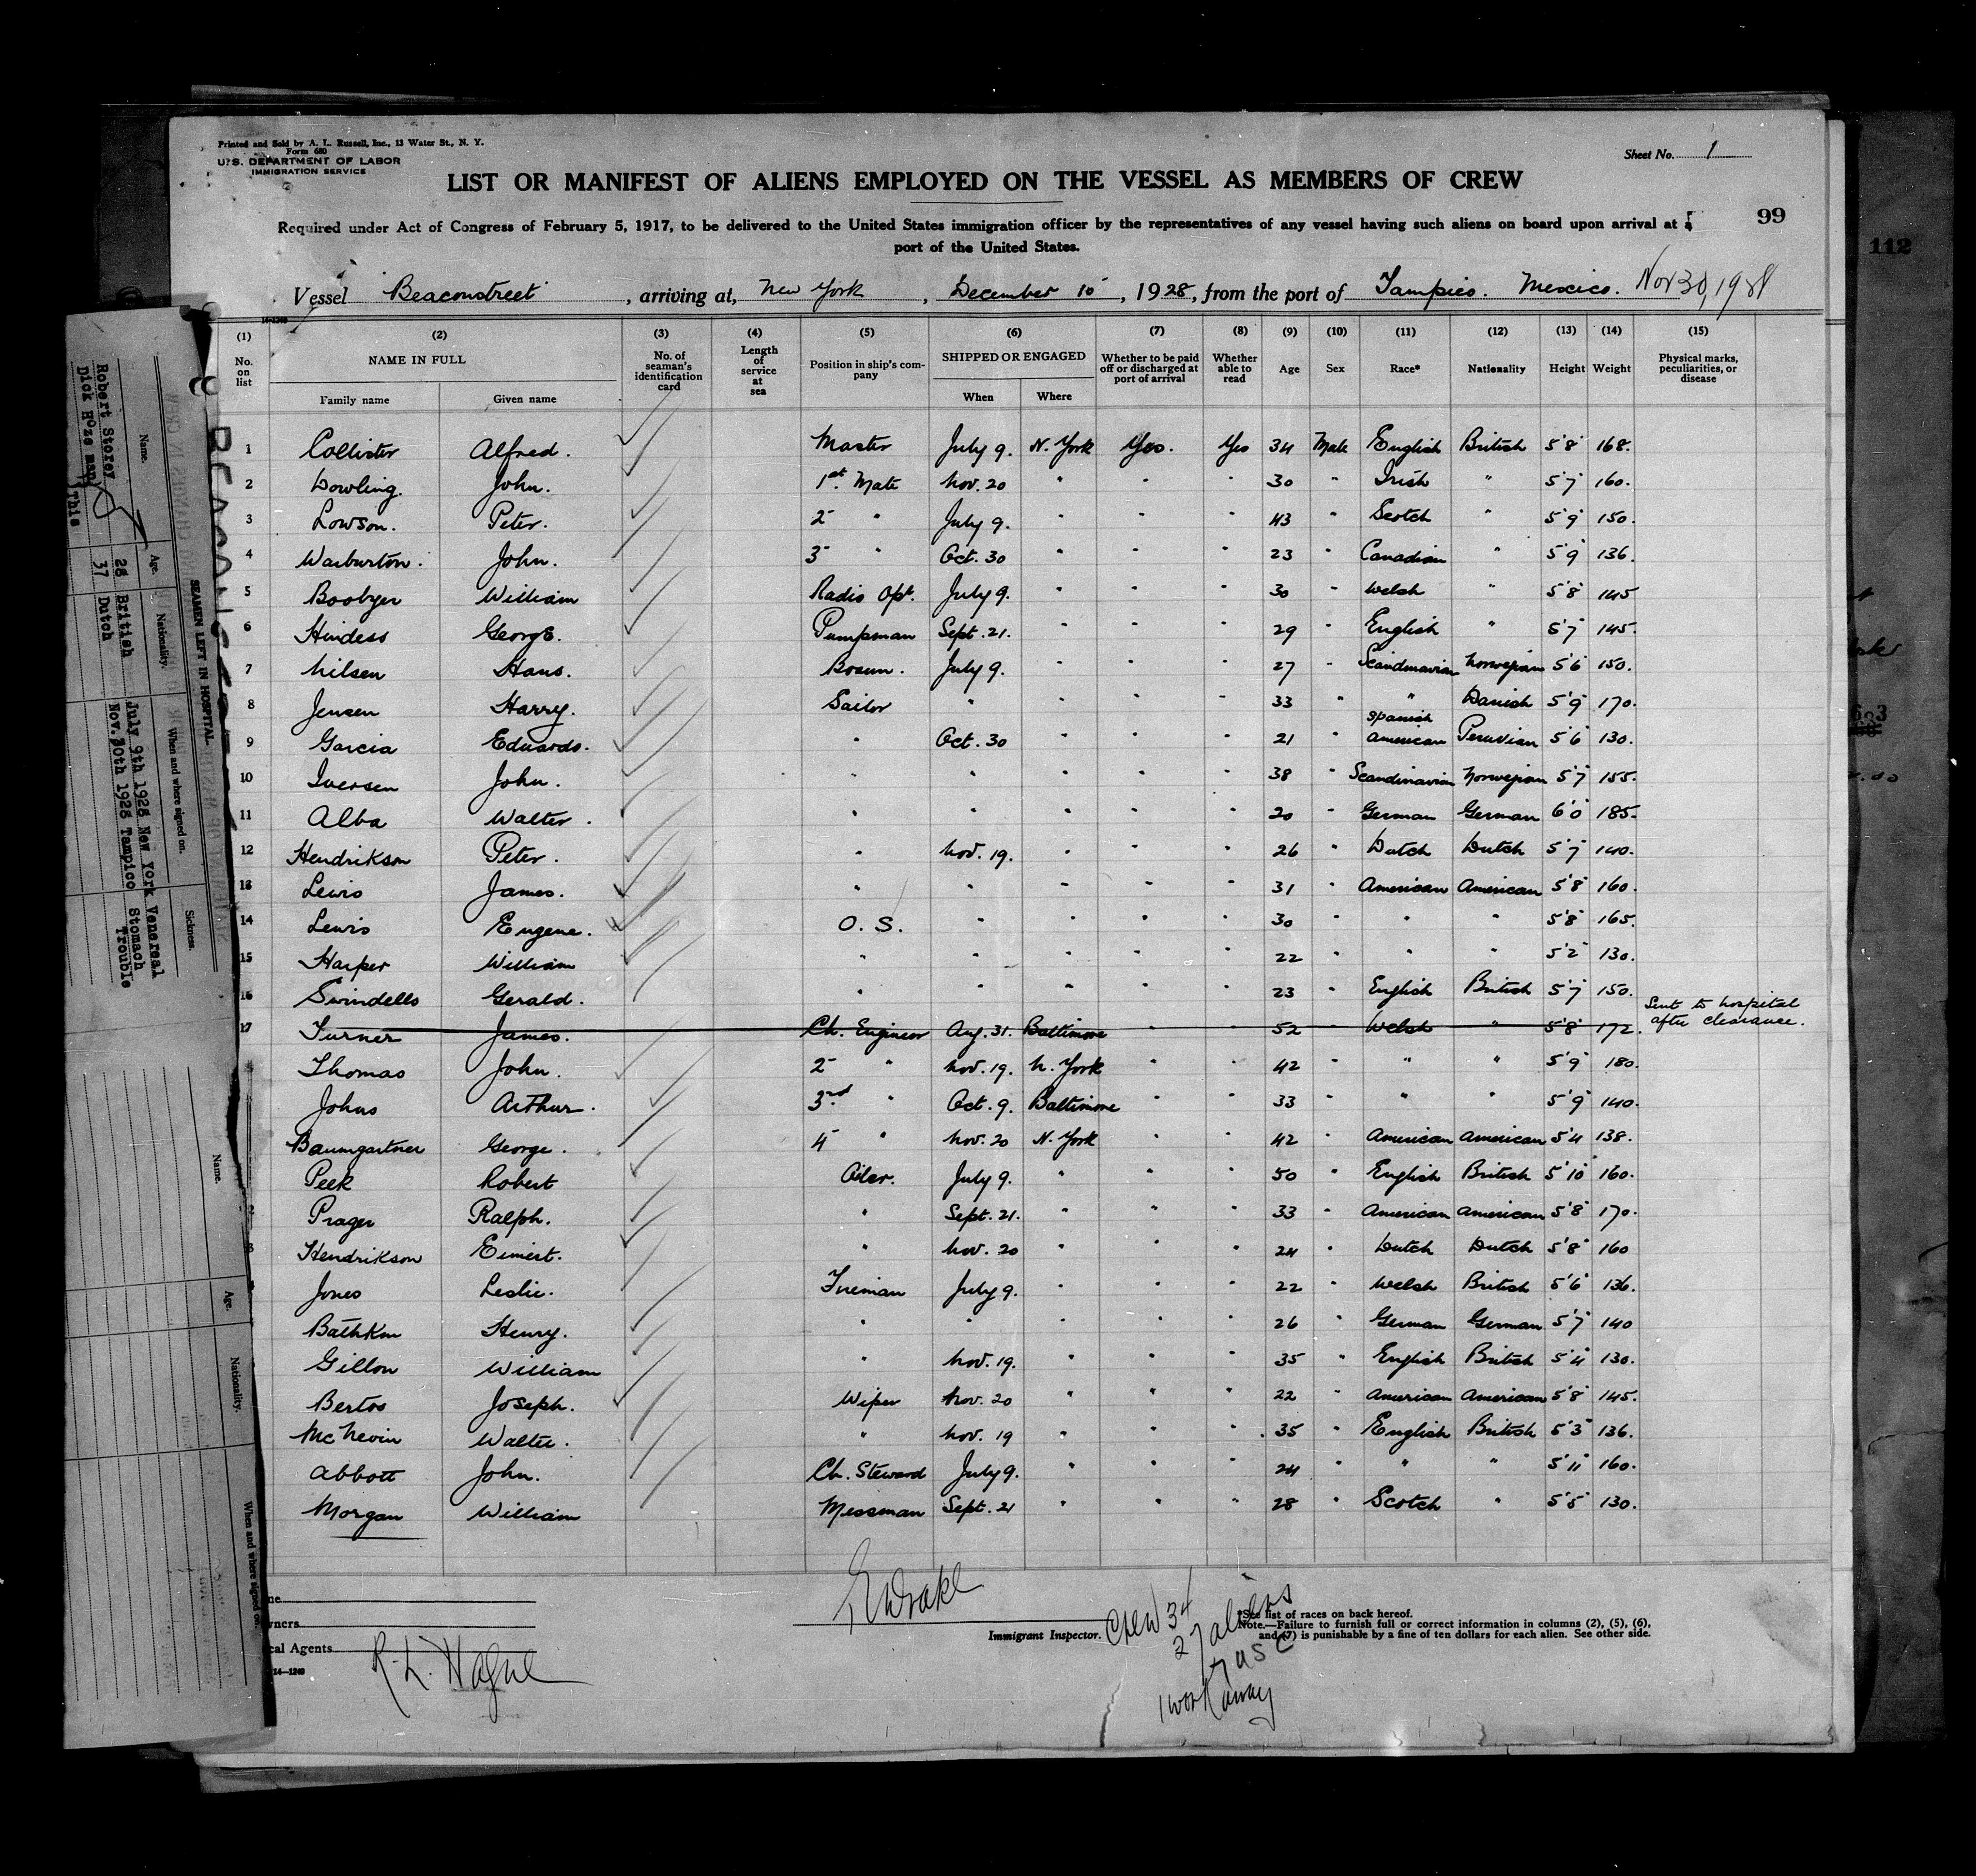 Printed and Sold by A. L. Russell, Inc., 13 Water St., N. Y.
Form 680
U.S. DEPARTMENT OF LABOR
IMMIGRATION SERVICE
Sheet No. 1
LIST OR MANIFEST OF ALIENS EMPLOYED ON THE VESSEL AS MEMBERS OF CREW
99
112
Required under Act of Congress of February 5, 1917, to be delivered to the United States immigration officer by the representatives of any vessel having such aliens on board upon arrival at a
port of the United States.
Vessel Beaconstreet, arriving at, New York, December 10, 1928, from the port of Tampico. Mexico. Nov 30, 1928
14-1240
(1) (2) (3) (4) (5) (6) (7) (8) (9) (10) (11) (12) (13) (14) (15)
No. on list
NAME IN FULL
Family name Given name
No. of seaman's identification card
Length of service at sea
Position in ship's company
SHIPPED OR ENGAGED
When Where
Whether to be paid off or discharged at port of arrival
Whether able to read
Age Sex Race* Nationality Height Weight
Physical marks, peculiarities, or disease
1 Collister Alfred. Master July 9. N. York Yes. Yes 34 Male English British 5'8" 168.
2 Dowling. John. 1st Mate Nov. 20 " " " 30 " Irish " 5'7" 160.
3 Lowson. Peter. 2 " July 9. " " " 43 " Scotch " 5'9" 150.
4 Warburton. John. 3 " Oct. 30 " " " 23 " Canadian " 5'9" 136.
5 Boobyer William Radio Opt. July 9. " " " 30 " Welsh " 5'8" 145
6 Hindess George. Pumpman Sept. 21. " " " 29 " English " 5'7" 145.
7 Nilsen Hans. Bosun. July 9. " " " 27 " Scandinavian Norwegian 5'6" 150.
8 Jensen Harry. Sailor " " " " 33 " " Danish 5'9" 170.
9 Garcia Eduardo. " Oct. 30 " " " 21 " Spanish American Peruvian 5'6" 130.
10 Iversen John. " " " " " 38 " Scandinavian Norwegian 5'7" 155.
11 Alba Walter. " " " " " 20 " German German 6'0" 185.
12 Hendrikson Peter. " Nov. 19. " " " 26 " Dutch Dutch 5'7" 140.
13 Lewis James. " " " " " 31 " American American 5'8" 160.
14 Lewis Eugene. O. S. " " " " 30 " " " 5'8" 165.
15 Harper William " " " " " 22 " " " 5'2" 130.
16 Swindells Gerald. " " " " " 23 " English British 5'7" 150.
17 Turner James. Ch. Engineer Aug. 31. Baltimore " " 52 " Welsh " 5'8" 172. Sent to hospital after clearance.
Thomas John. 2 " Nov. 19. N. York " " 42 " " " 5'9" 180.
Johns Arthur. 3rd " Oct. 9. Baltimore " " 33 " " " 5'9" 140.
Baumgartner George. 4 " Nov. 20 N. York " " 42 " American American 5'4 138.
Peek Robert Oiler. July 9. " " " 50 " English British 5'10" 160.
Prager Ralph. " Sept. 21. " " " 33 " American American 5'8" 170.
Hendrikson Eimert. " Nov. 20 " " " 24 " Dutch Dutch 5'8" 160
Jones Leslie. Fireman July 9. " " " 22 " Welsh British 5'6" 136.
Henry. " " " " " 26 " German German 5'7" 140
Gillon William " Nov. 19. " " " 35 " English British 5'4" 130.
Bertos Joseph. Wiper Nov. 20 " " " 22 " American American 5'8" 145.
McNevin Walter. " Nov. 19 " " " 35 " English British 5'3" 136.
Abbott John. Ch. Steward July 9. " " " 24 " " " 5'11" 160.
Morgan William Messman Sept. 21 " " " 28 " Scotch " 5'5" 130.
Immigrant Inspector.
Crew 34
27 aliens
7 USC
1 workaway
*See list of races on back hereof.
Note.—Failure to furnish full or correct information in columns (2), (5), (6),
and (7) is punishable by a fine of ten dollars for each alien. See other side.
wners
cal Agents
14—1240
R. L. Hague
SEAMEN LEFT IN HOSPITAL
Name. Age. Nationality. When and where signed on. Sickness.
Robert Storey 28 British July 9th 1928 New York Venereal
37 Dutch Nov. 30th 1928 Tampico Stomach Trouble
This
Name. Age. Nationality. When and where signed on.